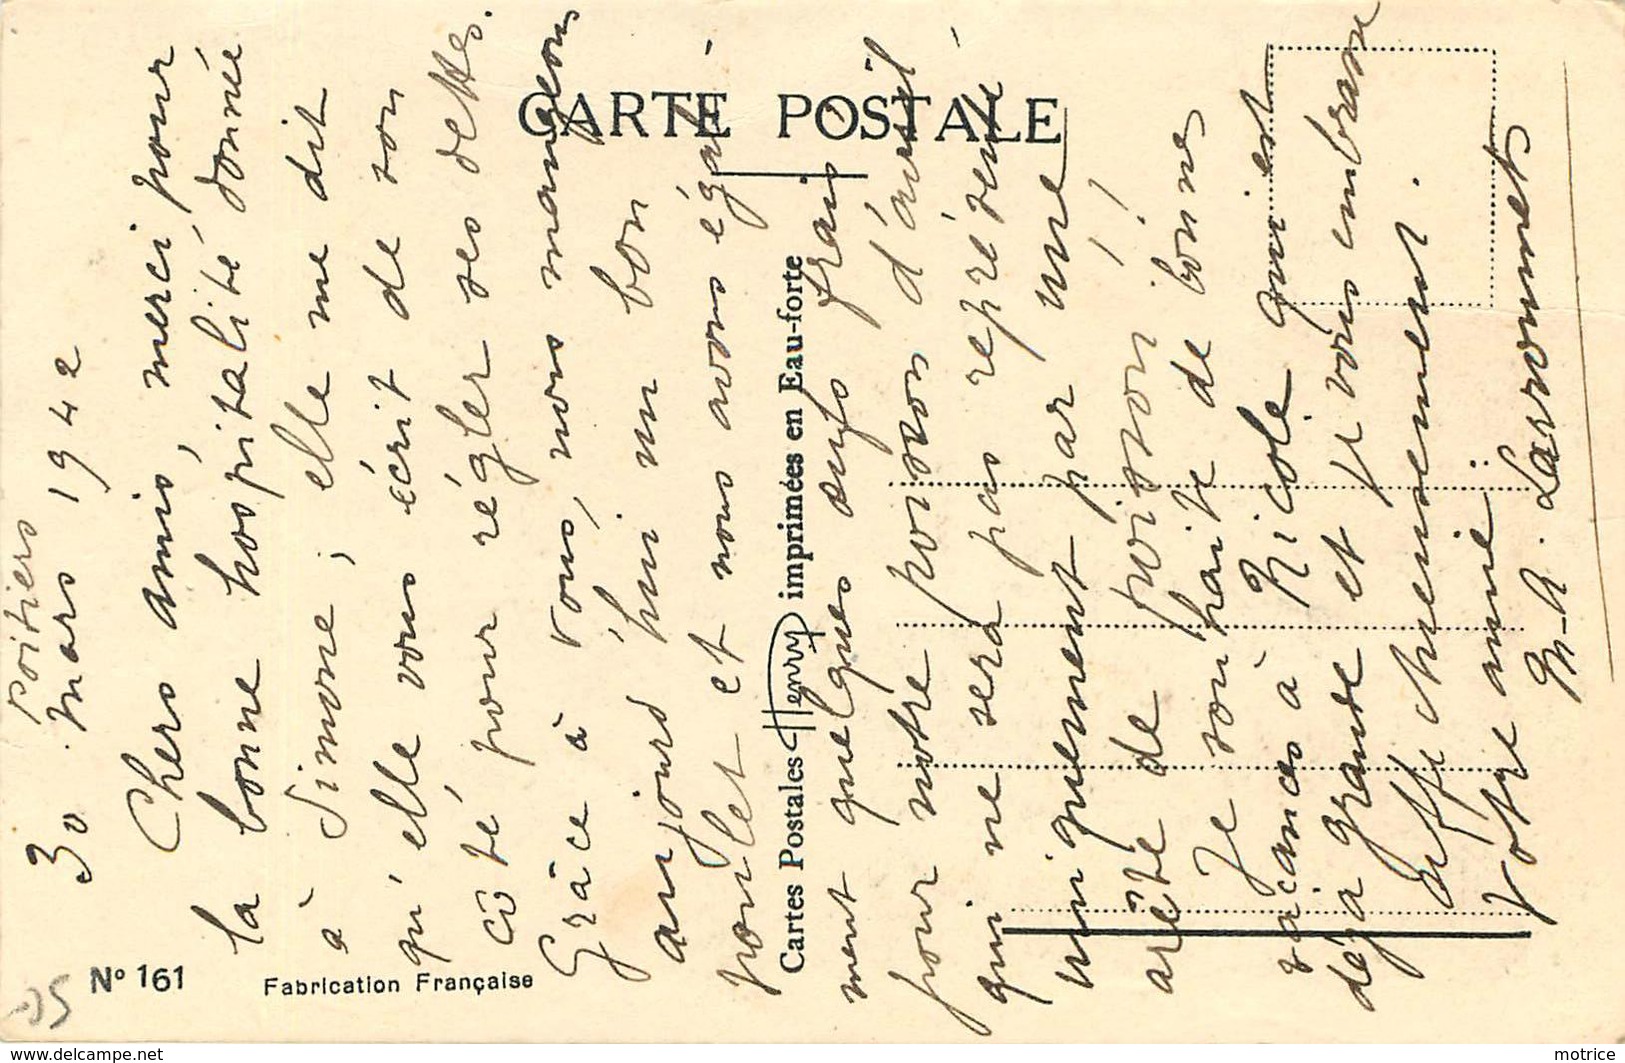 CARTE POSTALE
Poitiers
30 Mars 1942
Chers amis, merci pour
la bonne hospitalité donnée
à Simone ; elle me dit
qu'elle vous écrit de son
côté pour régler ses dettes.
Grâce à vous, nous mangeons
aujourd'hui un bon
poulet et nous avons égale-
ment quelques œufs frais
pour notre poisson d'avril
qui ne sera pas représenté
uniquement par une
arête de poisson !
Je souhaite de bonnes
vacances à Nicole qui est
déjà grande et vous embrasse
affectueusement.
Vôtre amie :
M-A. Laronmets
Cartes Postales Henry imprimées en Eau-forte
N° 161
Fabrication Française
www.delcampe.net
motrice